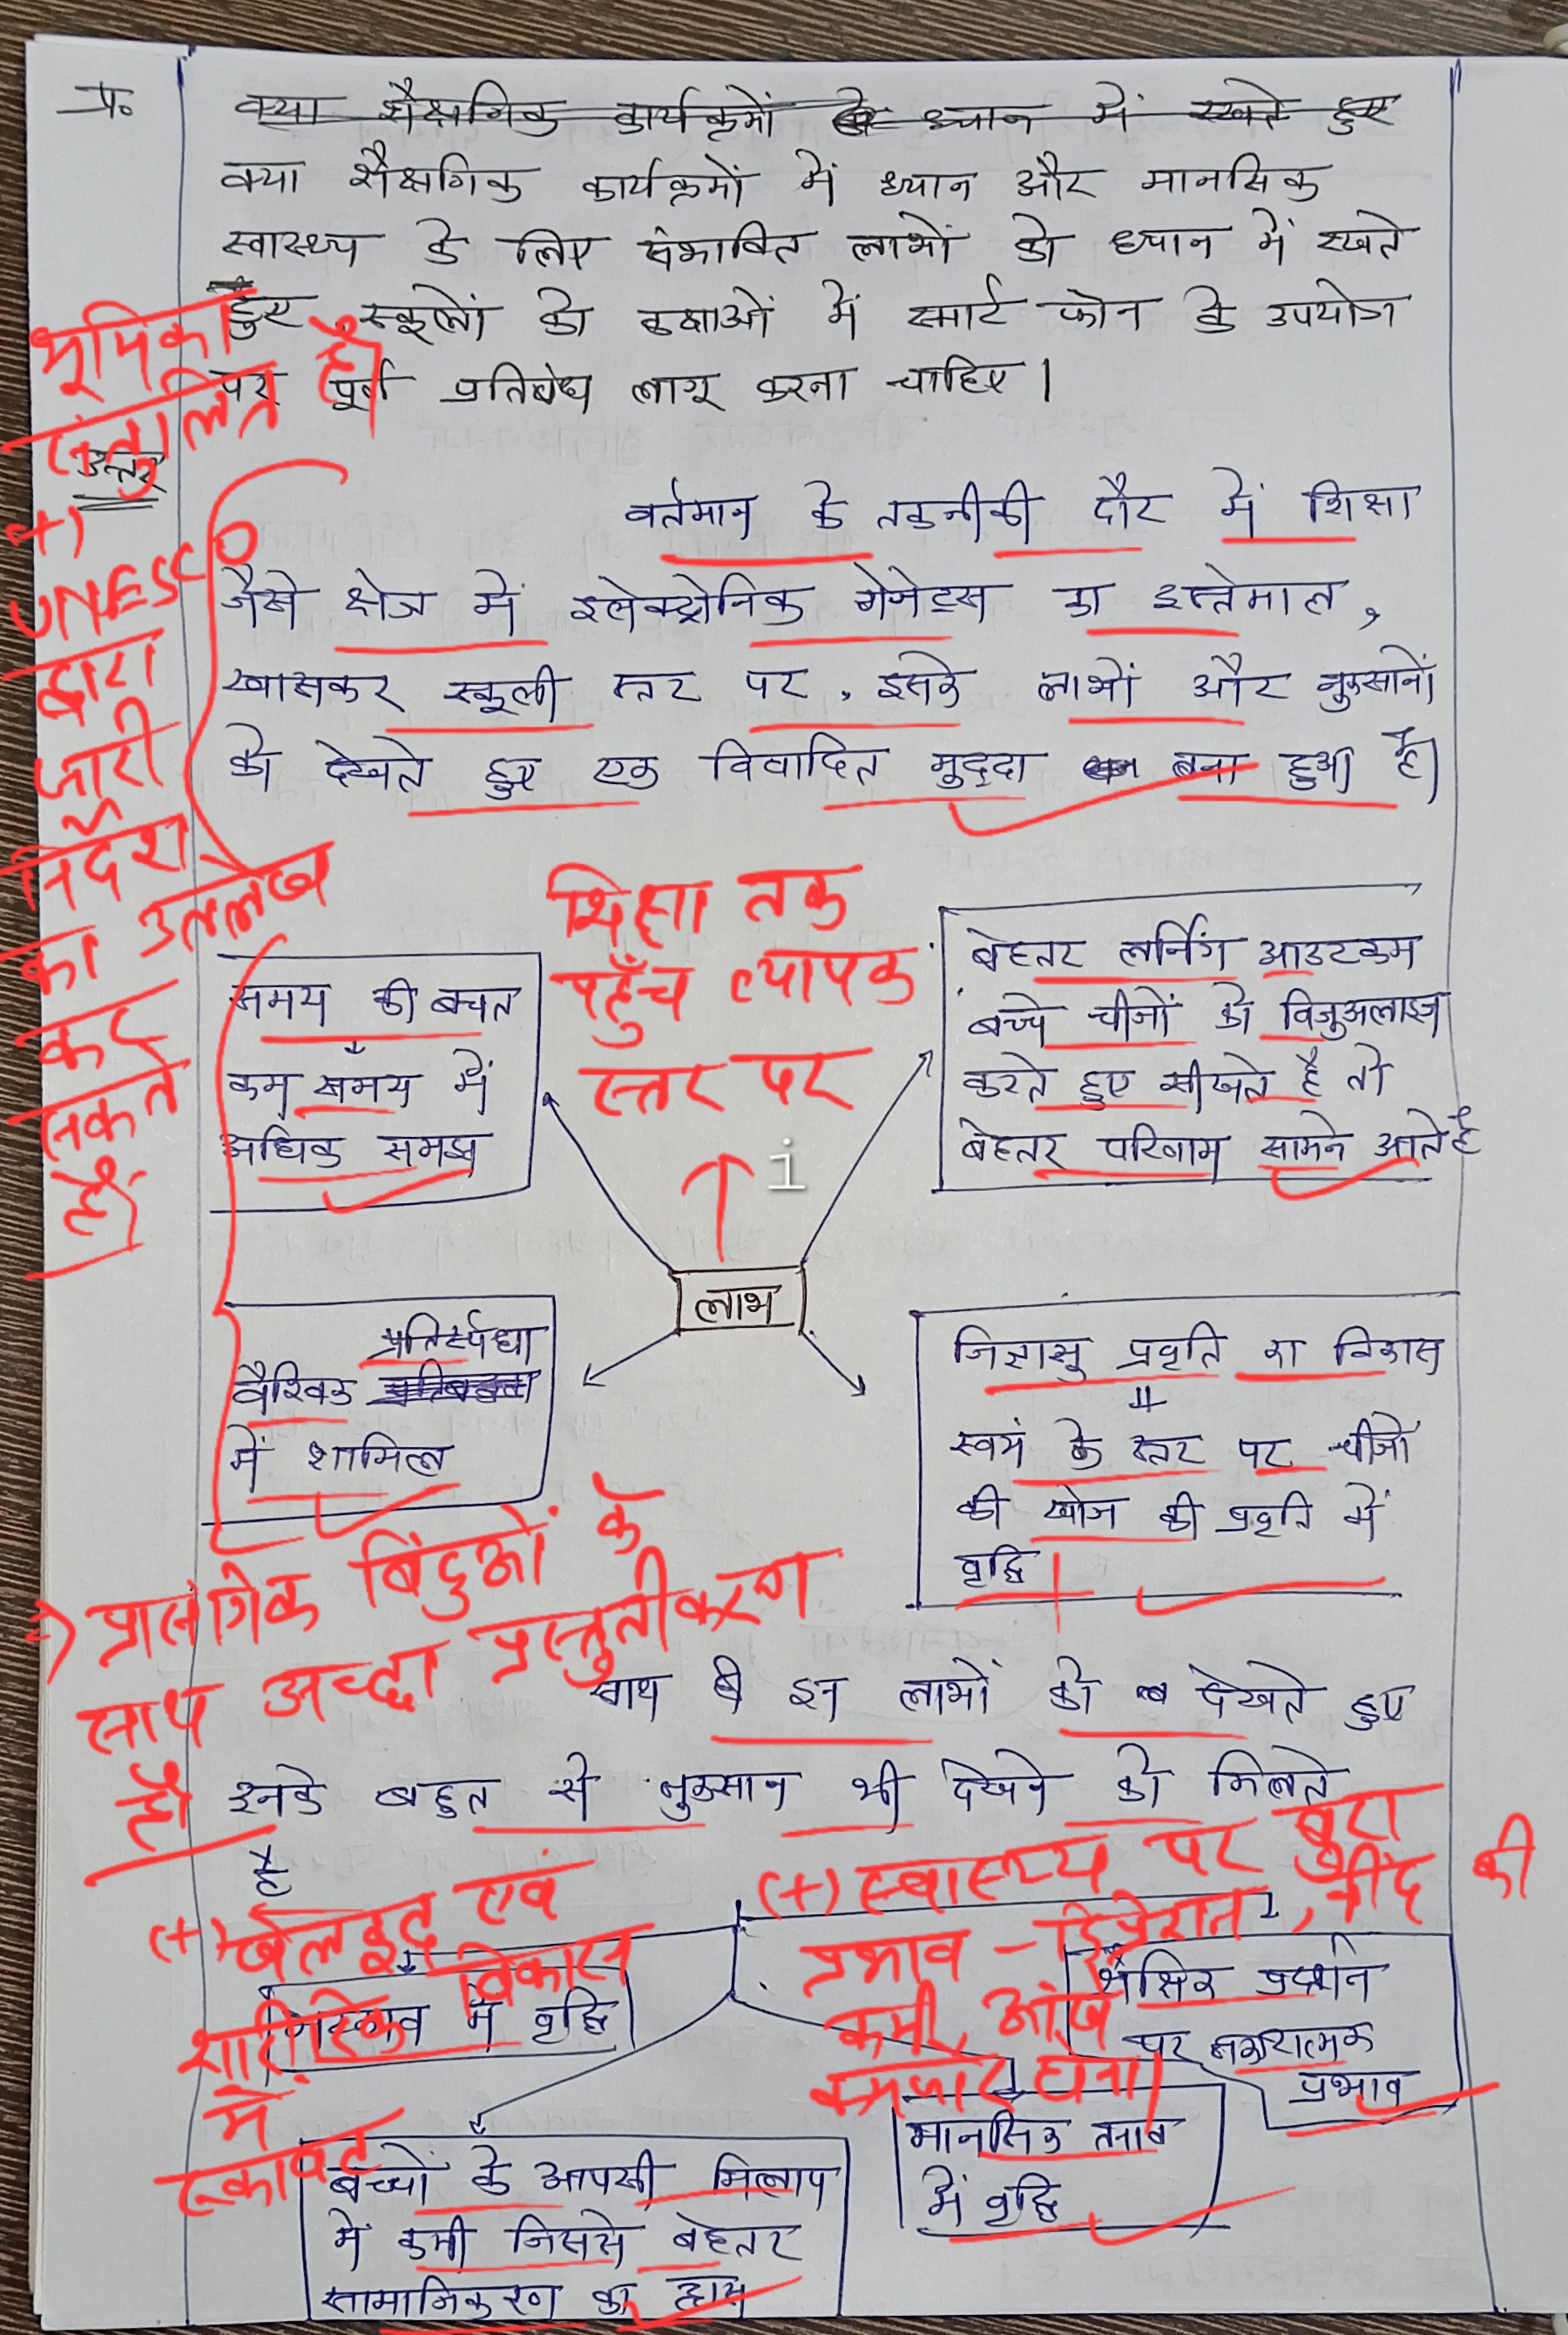 प्र.
क्या शैक्षणिक कार्यक्रमों के ध्यान में रखते हुए
क्या शैक्षणिक कार्यक्रमों में ध्यान और मानसिक
स्वास्थ्य के लिए संभावित लाभों को ध्यान में रखते
हुए स्कूलों को कक्षाओं में स्मार्ट फोन के उपयोग
पर पूर्ण प्रतिबंध लागू करना चाहिए।
भूमिका
संतुलित है।
उत्तर
(+)
UNESCO
द्वारा
जारी
निर्देश
का उल्लेख
कर
सकते
हैं।
वर्तमान के तकनीकी दौर में शिक्षा
जैसे क्षेत्र में इलेक्ट्रोनिक गेजेट्स का इस्तेमाल,
खासकर स्कूली स्तर पर, इसके लाभों और नुकसानों
को देखते हुए एक विवादित मुद्दा बना हुआ है।
शिक्षा तक
पहुँच व्यापक
स्तर पर
समय की बचत
कम समय में
अधिक समझ
बेहतर लर्निंग आउटकम
बच्चे चीजों को विजुअलाइज
करते हुए सीखते है तो
बेहतर परिणाम सामने आते है
i
लाभ
प्रतिस्पर्धा
वैश्विक
में शामिल
जिज्ञासु प्रवृति का विकास
स्वयं के स्तर पर चीजों
की खोज की प्रवृति में
वृद्धि।
प्रासंगिक बिंदुओं के
साथ अच्छा प्रस्तुतीकरण
है।
साथ ही इन लाभों को देखते हुए
इनके बहुत से नुकसान भी देखने को मिलते
है
(+)
एवं
शारीरिक विकास
में
रूकावट
(+) स्वास्थ्य पर बुरा
प्रभाव - डिप्रेशन, नींद की
कमी, आंख
कमजोर होना।
में वृद्धि
प्रदर्शन
पर नकारात्मक
प्रभाव
मानसिक तनाव
में वृद्धि
बच्चों के आपसी मिलाप
में कमी जिससे बेहतर
सामाजिकरण का ह्रास